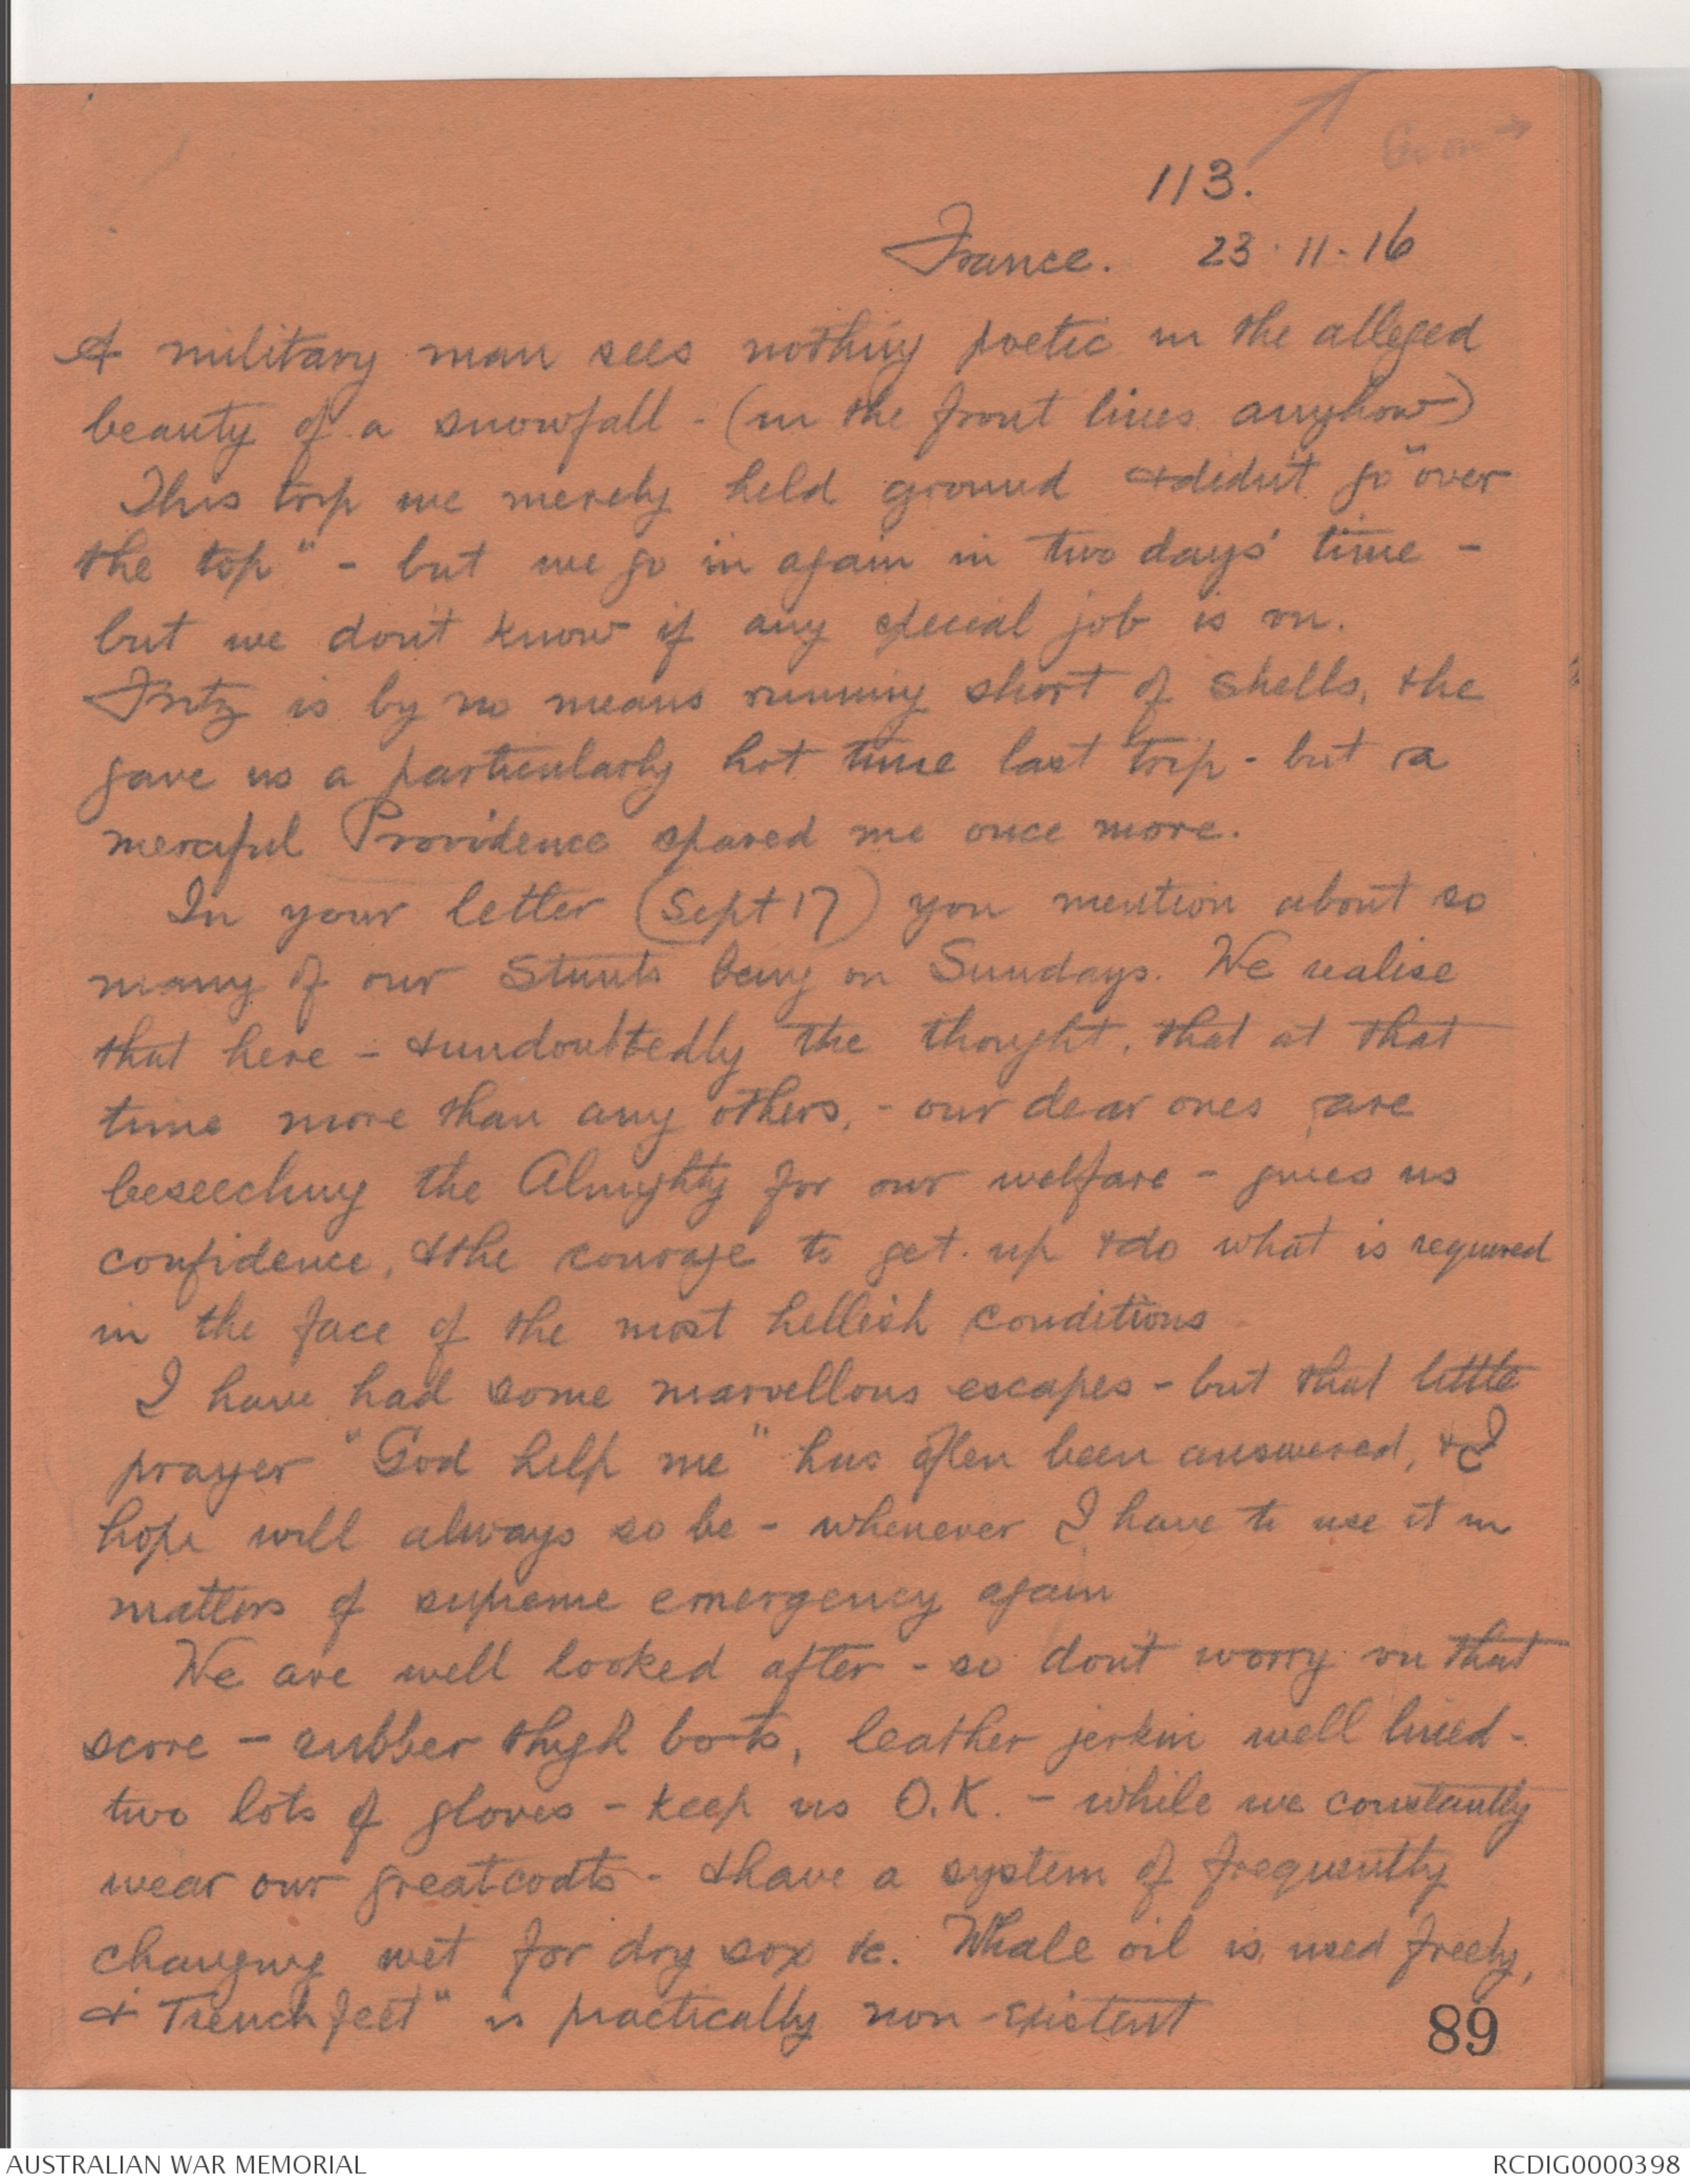 113.
France. 23.11.16
A military man sees nothing poetic in the alleged
beauty of a snowfall - (in the front lines anyhow)
This trip we merely held ground & didn't go "over
the top" - but we go in again in two days' time -
but we don't know if any special job is on.
Fritz is by no means running short of shells, & he
gave us a particularly hot time last trip - but a
merciful Providence spared me once more.
In your letter (Sept 17) you mention about so
many of our Stunts being on Sundays. We realise
that here - & undoubtedly the thought, that at that
time more than any others, - our dear ones are
beseeching the Almighty for our welfare - gives us
confidence, & the courage to get up & do what is required
in the face of the most hellish conditions
I have had some marvellous escapes - but that little
prayer "God help me" has often been answered, & I
hope will always so be - whenever I have to use it in
matters of supreme emergency again
We are well looked after - so don't worry on that
score - rubber thigh boots, leather jerkin well lined -
two lots of gloves - keep us O.K. - while we constantly
wear our greatcoats - & have a system of frequently
changing wet for dry sox &c. Whale oil is used freely,
& Trench feet" is practically non-existent
89
AUSTRALIAN WAR MEMORIAL
RCDIG0000398